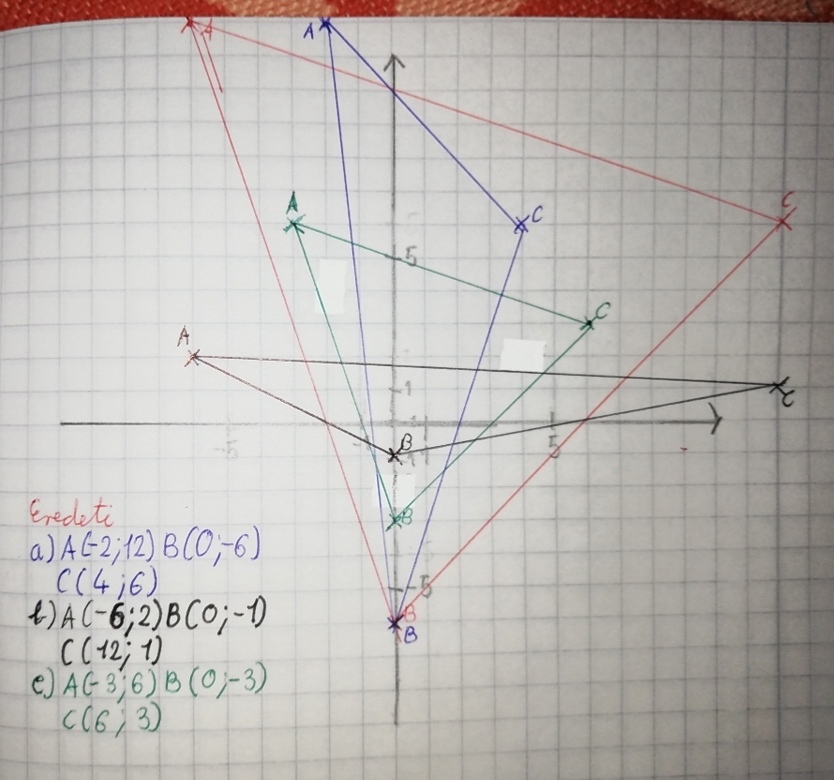 A
A
C
C
A
5
C
A
1
C
B
-5
5
B
-5
B
B
Eredeti
a) A(-2;12) B(0;-6)
C(4;6)
b) A(-6;2) B(0;-1)
C(12;1)
c) A(-3;6) B(0;-3)
C(6;3)